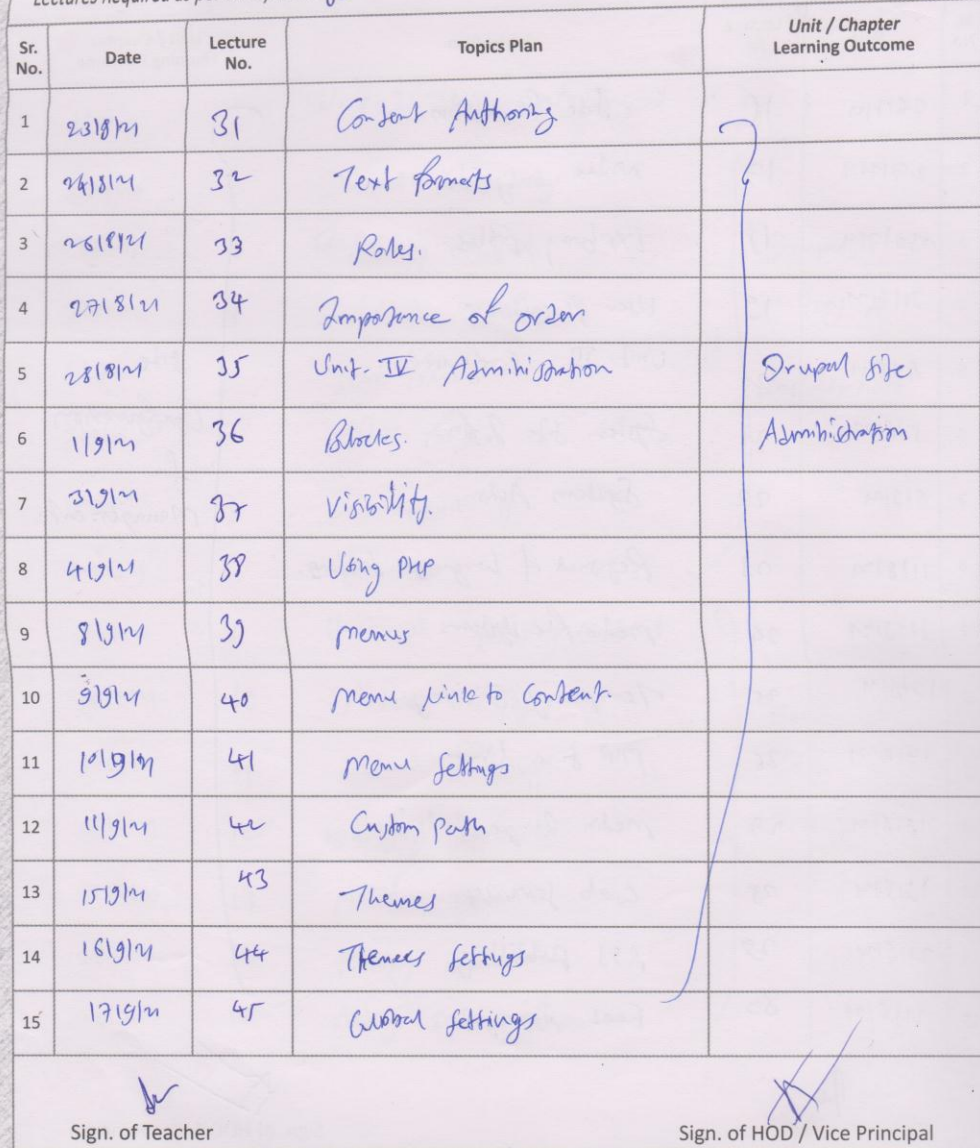 Lectures Required as per
Sr. No. Date Lecture No. Topics Plan Unit / Chapter Learning Outcome
1 23/8/21 31 Content Authoring
2 24/8/21 32 Text formats
3 26/8/21 33 Roles.
4 27/8/21 34 Importance of order
5 28/8/21 35 Unit-IV Administration Drupal Site
6 1/9/21 36 Blocks. Administration
7 3/9/21 37 Visibility.
8 4/9/21 38 Using PHP
9 8/9/21 39 Menus
10 9/9/21 40 Menu link to Content.
11 10/9/21 41 Menu Settings
12 11/9/21 42 Custom Path
13 15/9/21 43 Themes
14 16/9/21 44 Themes Settings
15 17/9/21 45 Global Settings
Sign. of Teacher Sign. of HOD / Vice Principal